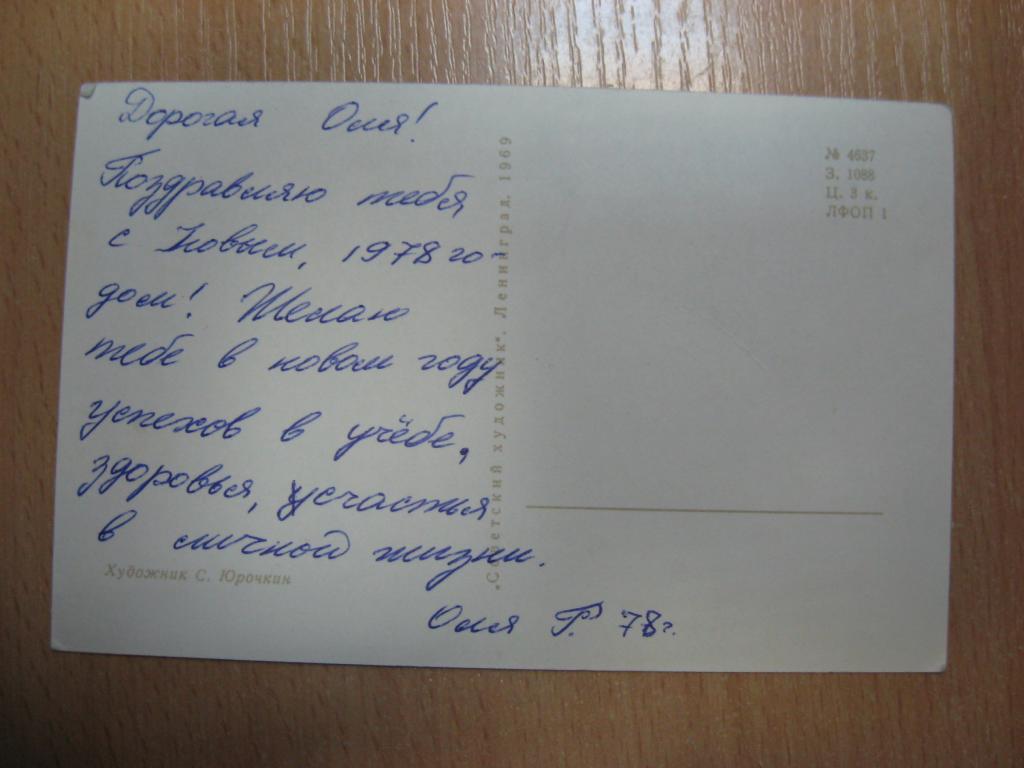 Дорогая Оля!
Поздравляю тебя
с Новым, 1978 го-
дом! Желаю
тебе в новом году
успехов в учёбе,
здоровья, счастья
в личной жизни.
Оля Г. 78г.
Художник С. Юрочкин
„Советский художник". Ленинград, 1969
№ 4637
З. 1088
Ц. 3 к.
ЛФОП 1